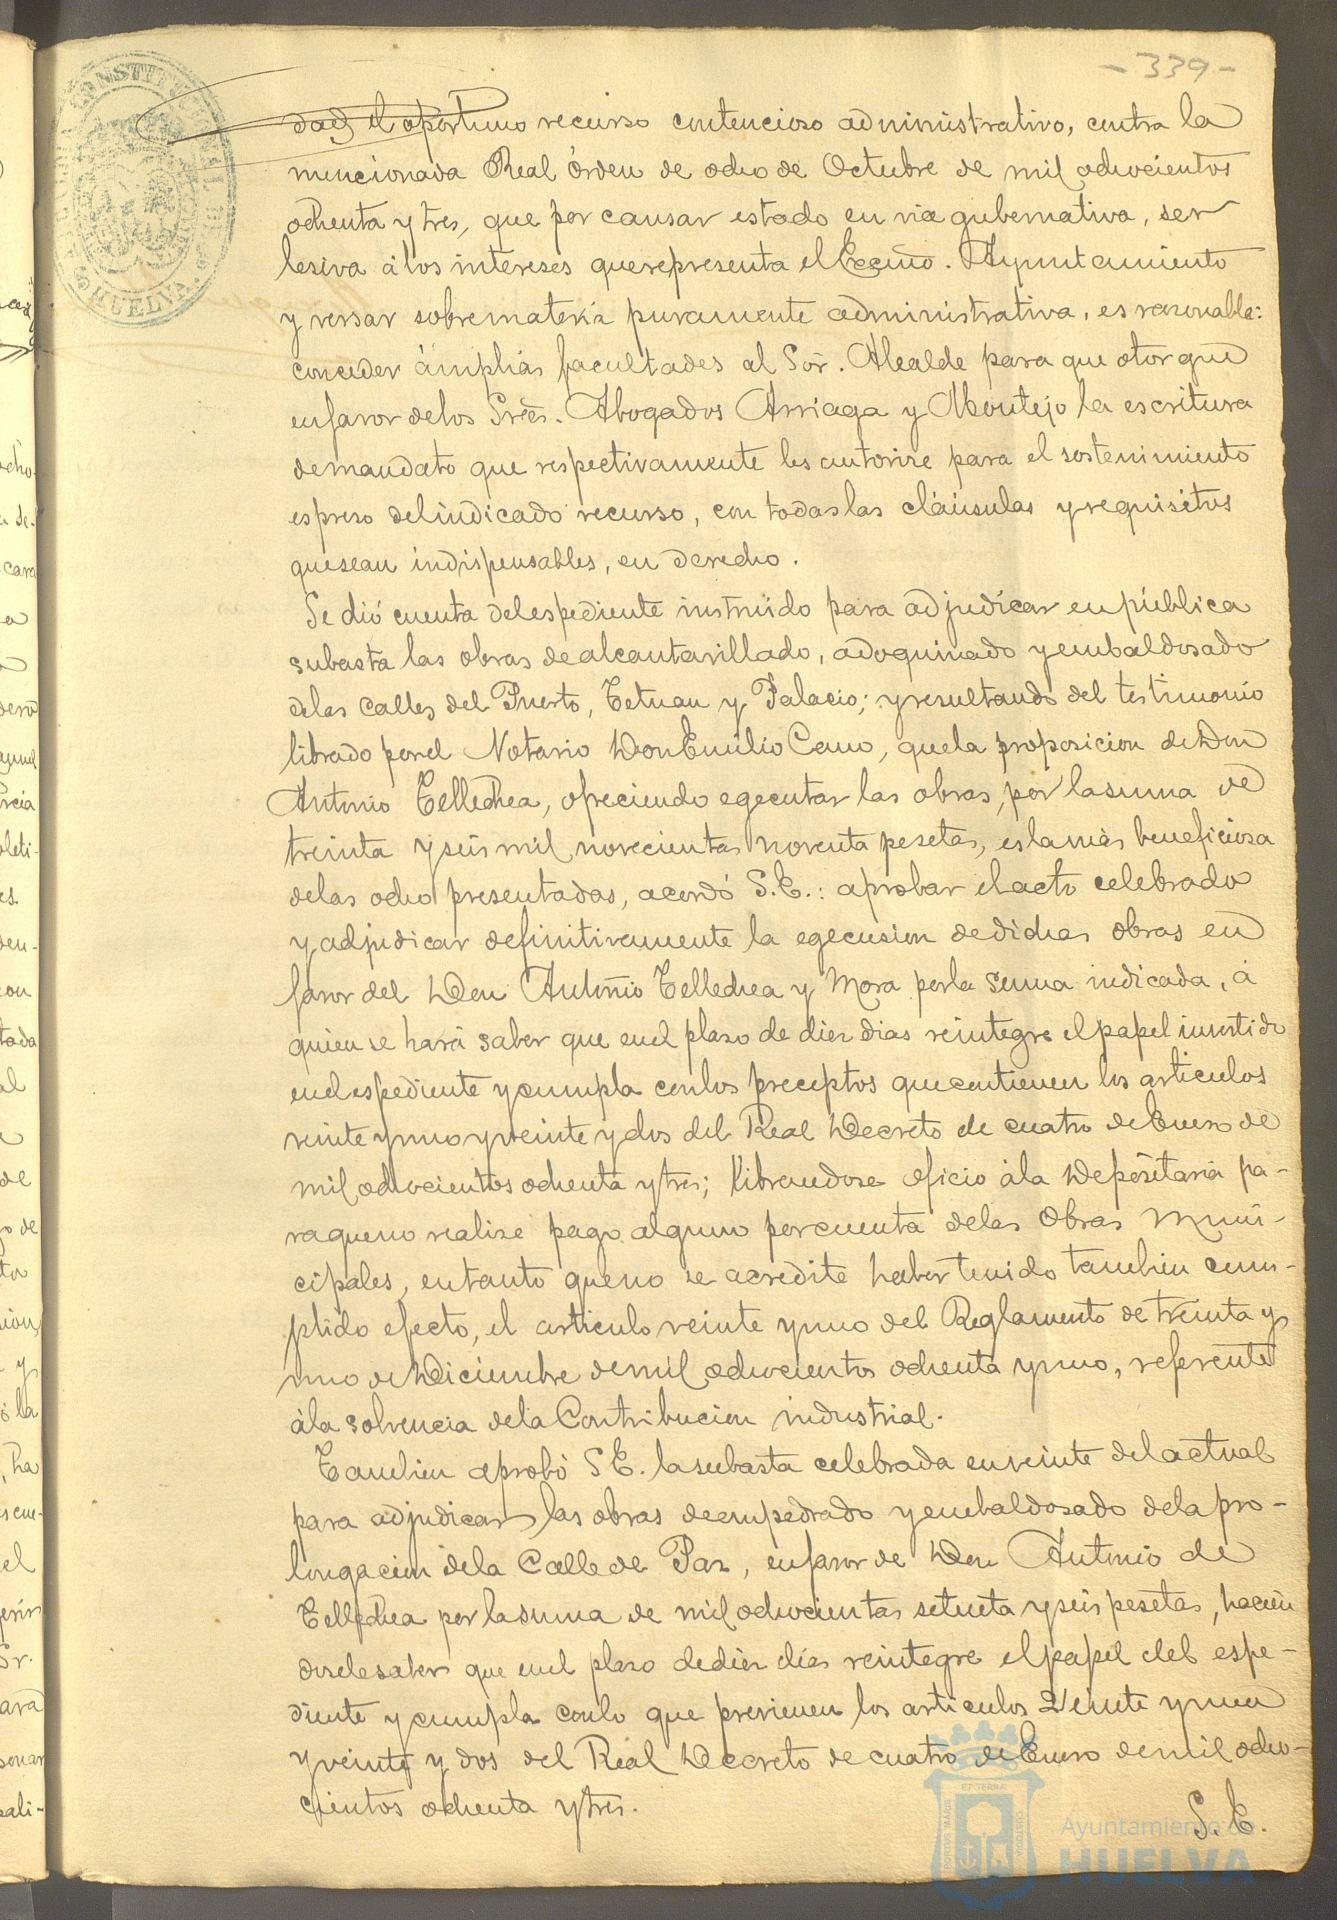 - 339 -
dad el oportuno recurso contencioso administrativo, contra la
mencionada Real órden de ocho de Octubre de mil ochocientos
ochenta y tres, que por causar estado en via gubernativa, ser
lesiva á los intereses que representa el Excmo. Ayuntamiento
y versar sobre materia puramente administrativa, es razonable:
conceder ámplias facultades al Sor. Alcalde para que otorgue
en favor de los Sres. Abogados Arriaga y Montejo la escritura
de mandato que respectivamente les autorise para el sostenimiento
espreso del indicado recurso, con todas las cláusulas y requisitos
que sean indispensables, en derecho.
Se dió cuenta del espediente instruido para adjudicar en pública
subasta las obras de alcantarillado, adoquinado y embaldosado
de las calles del Puerto, Tetuan y Palacio; y resultando del testimonio
librado por el Notario Don Emilio Cano, que la proposicion de Don
Antonio Tellechea, ofreciendo egecutar las obras, por la suma de
treinta y seis mil novecientas noventa pesetas, es la más beneficiosa
de las ocho presentadas, acordó S.E.: aprobar el acto celebrado
y adjudicar definitivamente la egecusion de dichas obras en
favor del Don Antonio Tellechea y Mora por la suma indicada, á
quien se hará saber que en el plazo de diez dias reintegre el papel invertido
en el espediente y cumpla con los preceptos que contienen los articulos
veinte y uno y veinte y dos del Real Decreto de cuatro de Enero de
mil ochocientos ochenta y tres; librandose oficio á la Depositaria pa-
ra que no realize pago alguno por cuenta de las Obras Muni-
cipales, en tanto que no se acredite haber tenido tambien cum-
plido efecto, el articulo veinte y uno del Reglamento de treinta y
uno de Diciembre de mil ochocientos ochenta y uno, referente
á la solvencia de la Contribucion industrial.
Tambien aprobó S.E. la subasta celebrada en veinte del actual
para adjudicar las obras de empedrado y embaldosado de la pro-
longacion de la Calle de Paz, en favor de Don Antonio de
Tellechea por la suma de mil ochocientas setenta y seis pesetas, hacien
dosele saber que en el plazo de diez dias reintegre el papel del espe-
diente y cumpla con lo que previenen los articulos veinte y uno
y veinte y dos del Real Decreto de cuatro de Enero de mil ocho-
cientos ochenta y tres.
S. E.
CONSTITUCIONAL
HUELVA
PORTUS MARIS
ET TERRAE
CUSTODIA
Ayuntamiento de
HUELVA